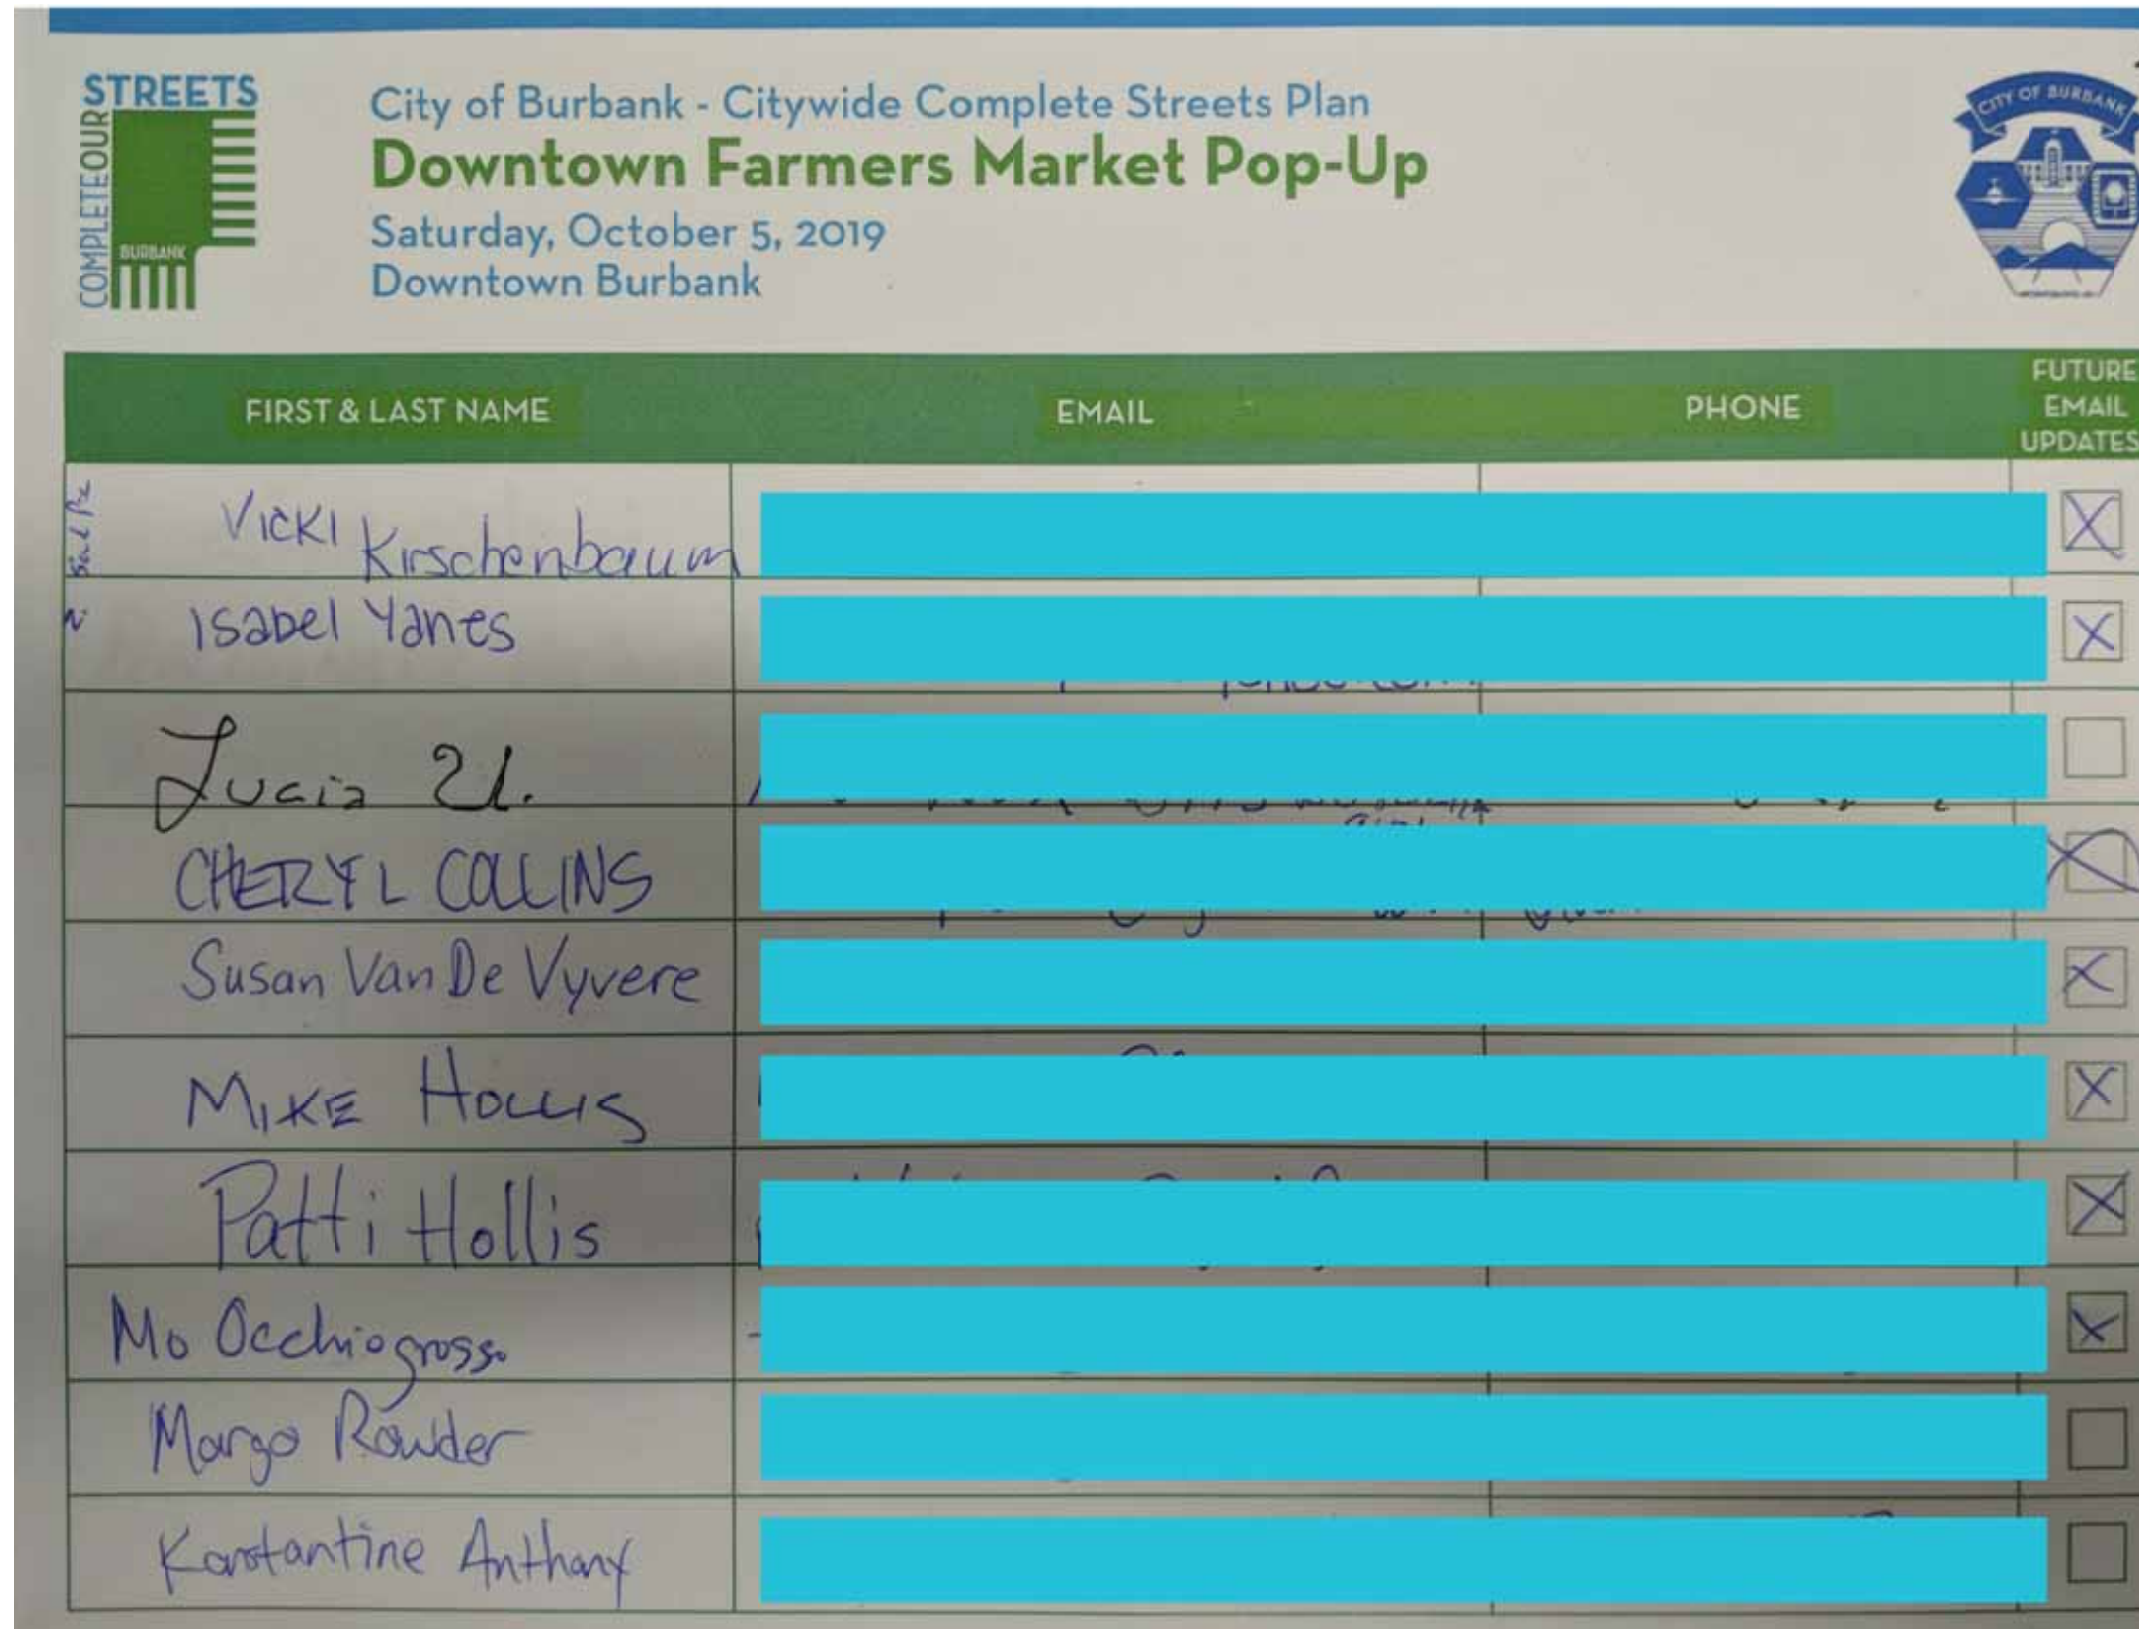 STREETS
COMPLETE OUR
BURBANK
City of Burbank - Citywide Complete Streets Plan
Downtown Farmers Market Pop-Up
Saturday, October 5, 2019
Downtown Burbank
CITY OF BURBANK
FIRST & LAST NAME EMAIL PHONE FUTURE EMAIL UPDATES
VICKI Kirschenbaum
Isabel Yanes
Lucia U.
CHERYL COLLINS
Susan Van De Vyvere
MIKE HOLLIS
Patti Hollis
Mo Occhiogrosso
Margo Rowder
Konstantine Anthony